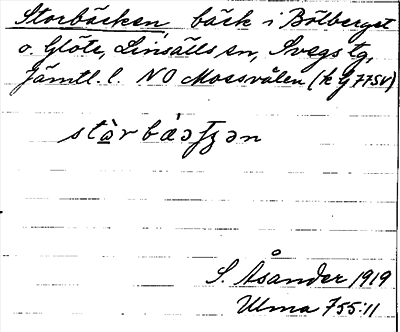 Storbäcken, bäck i Bölberget
o. Glöte, Linsälls sn, Svegs tg,
Jämtl. l. NO Mossvålen (k G 7750)
S. Åsander 1919
Ulma 755:11